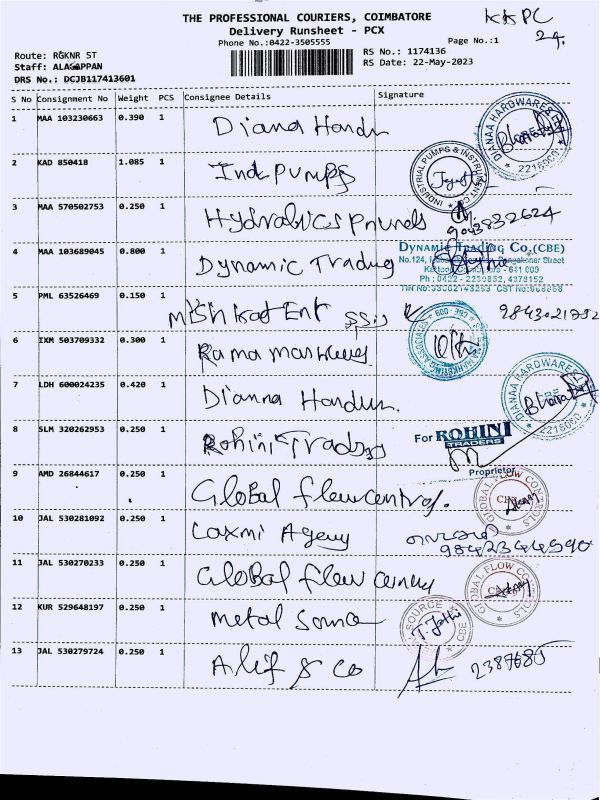 THE PROFESSIONAL COURIERS, COIMBATORE
KKPC
Delivery Runsheet - PCX
24.
Phone No.:0422-3505555
Page No.:1
Route: RGKNR ST
RS No.: 1174136
Staff: ALAGAPPAN
RS Date: 22-May-2023
DRS No.: DCJB117413601
S No Consignment No Weight PCS Consignee Details Signature
1 MAA 103230663 0.390 1 Diana Hardu
DIANAA HARDWARES
2216900
2 KAD 850418 1.085 1 Ind Pumps
INDUSTRIAL PUMPS & INSTRUMENT
3 MAA 570502753 0.250 1 Hydrabics Pnumds
9043832624
4 MAA 103689045 0.800 1 Dynamic Trading
DYNAMIC TRADING CO.(CBE)
No.124,
5 PML 63526469 0.150 1 Mishkat Ent
9843021792
6 IXM 503709332 0.300 1 Rama
MARKETING ASSOCIATES
7 LDH 600024235 0.420 1 Dianna
DIANAA HARDWARES
8 SLM 320262953 0.250 1 Rohini Traders
For ROHINI
TRADERS
Proprietor
9 AMD 26844617 0.250 1 Global flow control.
GLOBAL FLOW CONTROLS
10 JAL 530281092 0.250 1 Laxmi Agency
9842344590
11 JAL 530270233 0.250 1 Global flow
GLOBAL FLOW
12 KUR 529648197 0.250 1 Metal Source
SOURCE
CBE
T. Jothi
13 JAL 530279724 0.250 1 Alif & Co
2387685